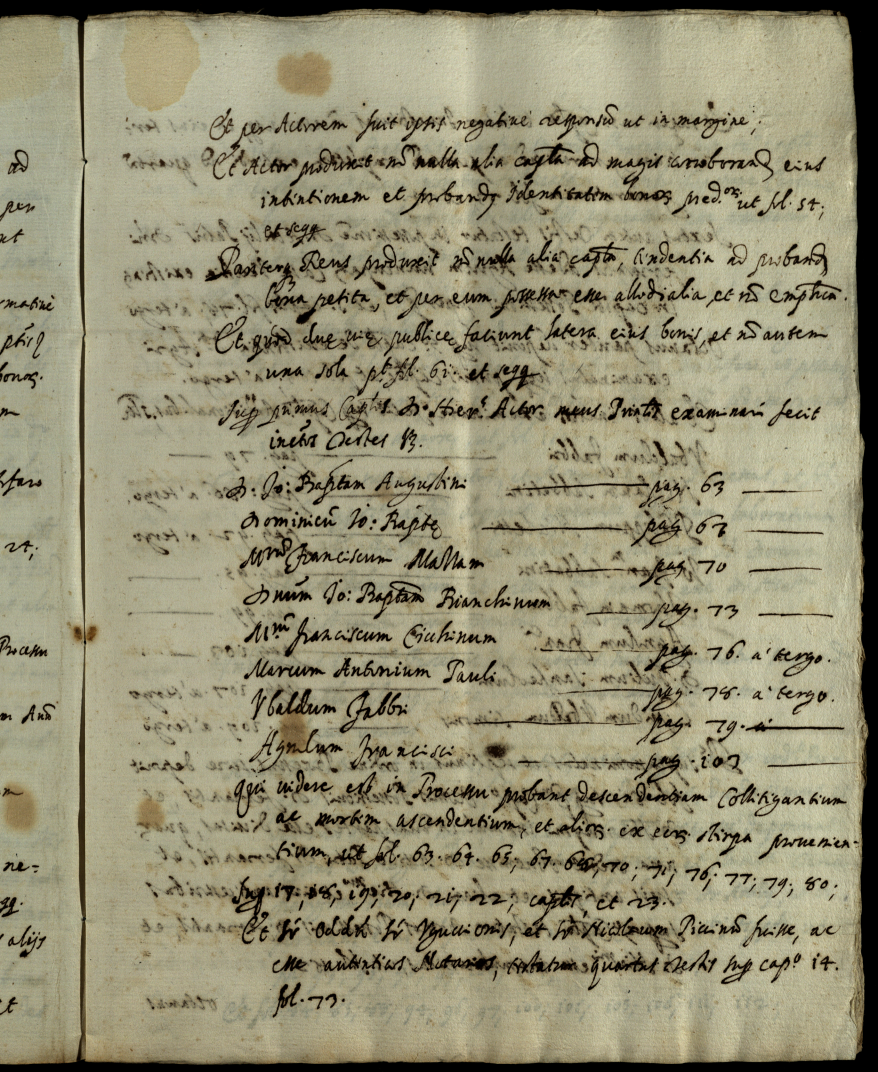 Et per Actorem fuit ipsis negative responsū ut in margine;
Et Actor produxit nō nulla alia capta ad magis corroborand eius
intintionem et proband Identitatem bonoꝝ pred.oꝝ ut fol. 54;
et seqq
Pariterq Reus produxit nō nulla alia capta, tendentia ad proband
bona petita, et per eum possessa esse allodialia et nō emphita.
Et quod duę vię publicę faciunt latera eius bonis, et nō autem
una sola pt fol. 61. et seqq
Sup primus Captis D. Hier.s Actor meus Prinlis examinari fecit
infros Testes 8.
D. Jo: Baptam Augustini pag. 63
Dominicū Jo: Baptę pag 67
Mrum Franciscum Massam pag 70
Dnum Jo: Baptam Bianchinum pag. 73
Mrm Franciscum Cicchinum pag. 76. a' tergo.
Marcum Antonium Pauli pag. 78. a' tergo.
Ubaldum Fabbri pag. 79.
Agnilum Francisci pag. 103
Qui videre est in Processu probant descendentiam Collitigantium
ac mortem ascendentium, et alioꝝ ex eoꝝ stirpa provenien-
tium, ut fol. 63. 64. 65; 67. 68; 70; 71; 76; 77; 79; 80;
Sup 17; 18; 19; 20; 21; 22; captis, et 23.
Et Sr Oddū Sr Uguccionis, et Sr Nicolaum Piccinū fuisse, ac
esse autinticos Notarios, testatur quartus testis sup cap.o 14.
fol. 73.
ad
per
ut
bonoꝝ.
24;
Processu
ne=
alijs
et